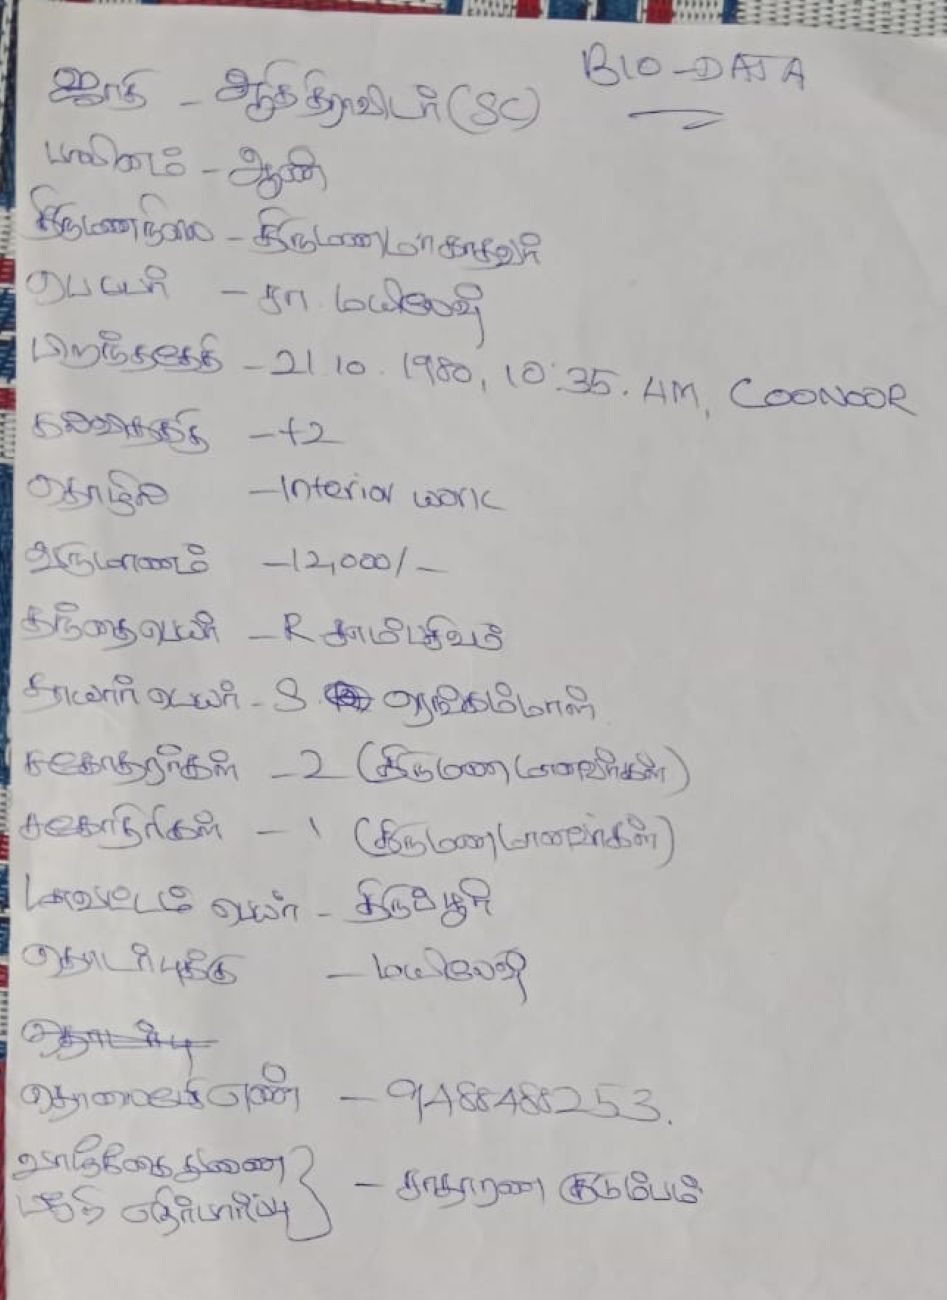 BIO-DATA
ஜாதி - ஆதிதிராவிடர் (SC)
பாலினம் - ஆண்
திருமணநிலை - திருமணமாகாதவர்
பெயர் - சா.
பிறந்ததேதி - 21 10. 1980, 10:35. AM, COONOOR
கல்வித்தகுதி - +2
தொழில் - Interior work
வருமாணம் - 12,000/-
தந்தை பெயர் - R சாம்பசிவம்
தாயார் பெயர் - S. ரெங்கம்மாள்
சகோதரர்கள் - 2 (திருமணமானவர்கள்)
சகோதரிகள் - 1 (திருமணமானவர்கள்)
மாவட்டம் பெயர் - திருப்பூர்
தொடர்புக்கு -
தொலைபேசி எண் - 9488488253.
வாழ்க்கை துணை
பற்றி எதிர்பார்ப்பு } - சாதாரண குடும்பம்